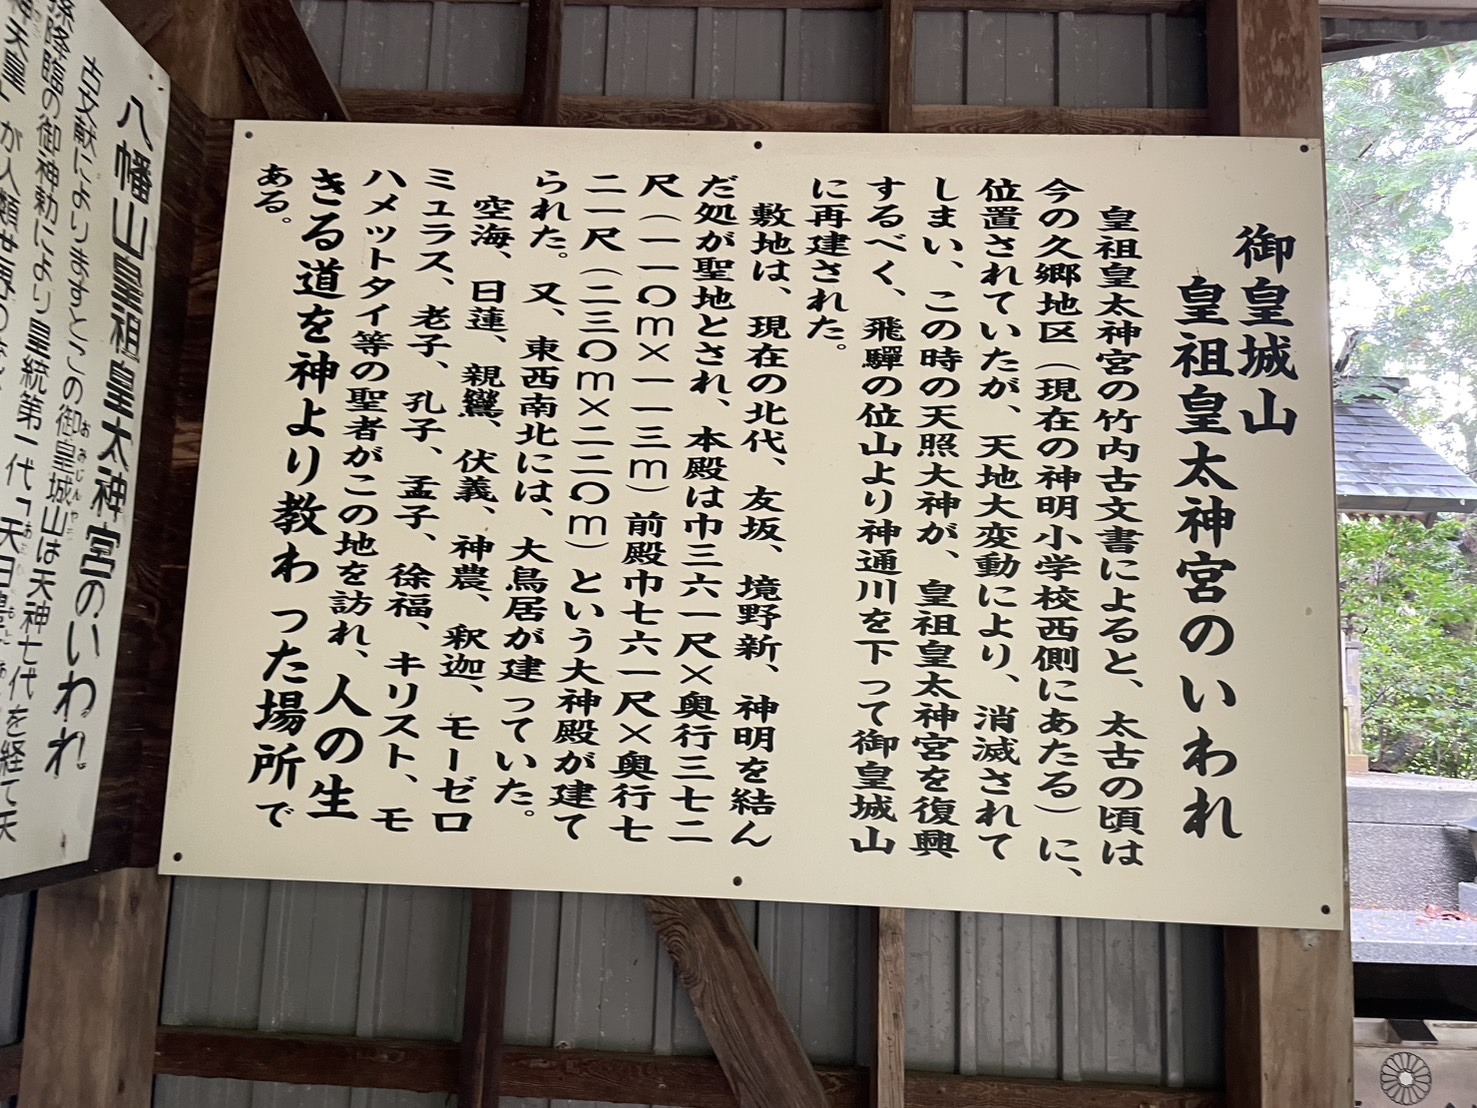 御皇城山
皇祖皇太神宮のいわれ
皇祖皇太神宮の竹内古文書によると、太古の頃は
今の久郷地区（現在の神明小学校西側にあたる）に、
位置されていたが、天地大変動により、消滅されて
しまい、この時の天照大神が、皇祖皇太神宮を復興
するべく、飛騨の位山より神通川を下って御皇城山
に再建された。
敷地は、現在の北代、友坂、境野新、神明を結ん
だ処が聖地とされ、本殿は巾三六一尺×奥行三七二
尺（一一〇m×一一三m）前殿巾七六一尺×奥行七
二一尺（二三〇m×二二〇m）という大神殿が建て
られた。又、東西南北には、大鳥居が建っていた。
空海、日蓮、親鸞、伏義、神農、釈迦、モーゼロ
ミュラス、老子、孔子、孟子、徐福、キリスト、モ
ハメットタイ等の聖者がこの地を訪れ、人の生
きる道を神より教わった場所で
ある。
八幡山皇祖皇太神宮のいわれ
古文献によりますとこの御皇城山は天神七代を経て天
孫降臨の御神勅により皇統第一代「天日
神天皇」が人類世界の